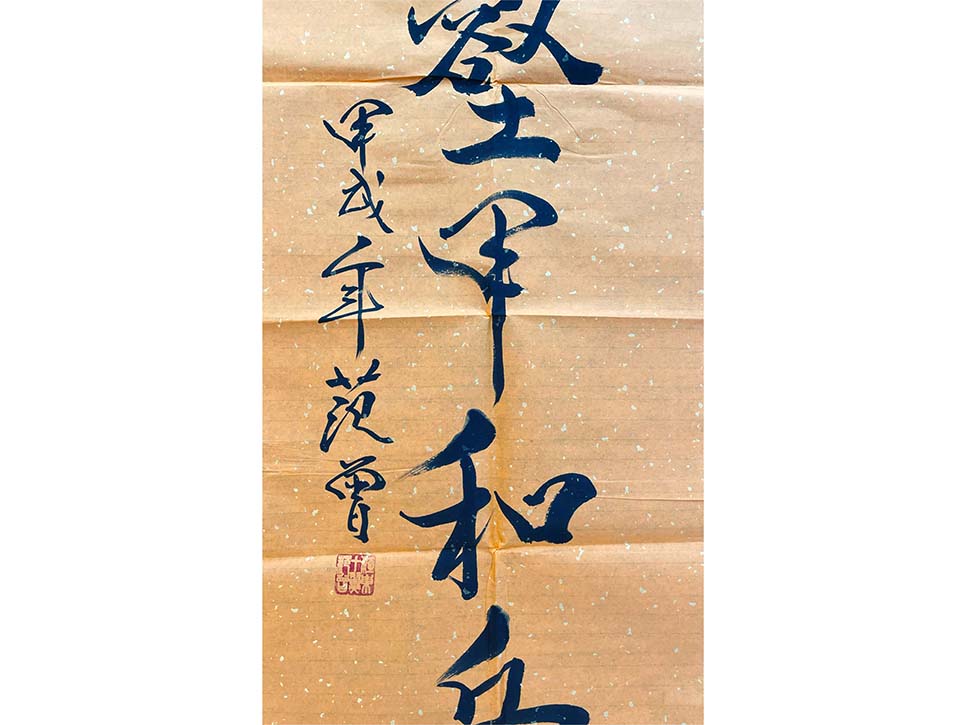 壑甲和
甲戌年范曾